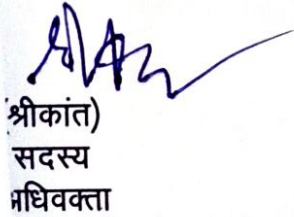 श्रीकांत)
सदस्य
अधिवक्ता